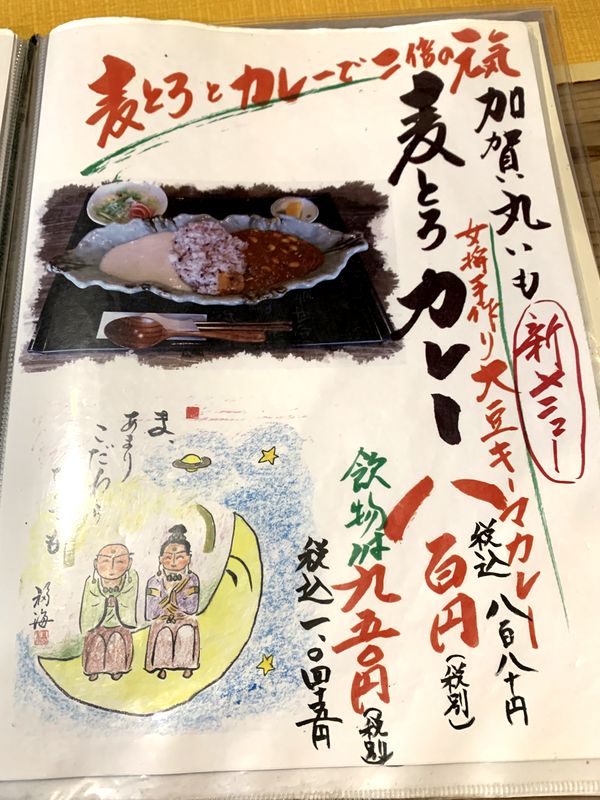 麦とろとカレーで二倍の元気
加賀丸いも
麦とろカレー
新メニュー
女将手作り大豆キーマカレー
八百円(税別)
税込 八百八十円
飲物付
九五〇円(税別)
税込 一、〇四五円
ま、
あまり
こだわら